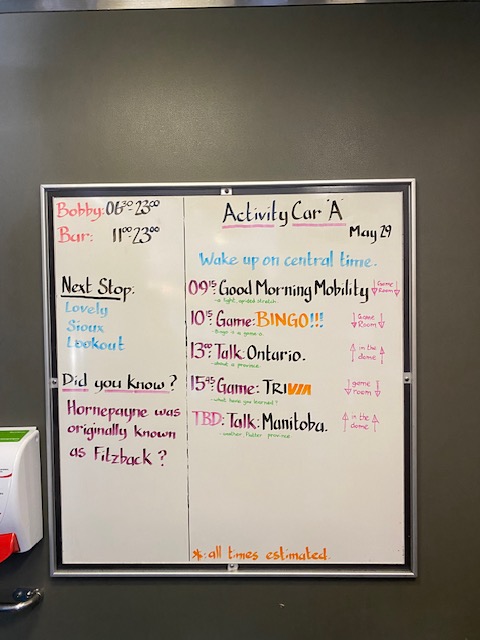 Bobby: 06³⁰-23⁰⁰
Bar: 11⁰⁰-23⁰⁰
Next Stop:
Lovely
Sioux
Lookout
Did you know?
Hornepayne was
originally known
as Fitzback?
Activity Car 'A'
May 29
Wake up on central time.
09¹⁵: Good Morning Mobility
↓ Game Room ↓
- a light, guided stretch.
10¹⁵ Game: BINGO!!!
↓ Game Room ↓
- Bingo is a game o.
13⁰⁰ Talk: Ontario.
↑ in the dome ↑
- about a province.
15⁴⁵ Game: TRIVIA
↓ game room ↓
- what have you learned?
TBD: Talk: Manitoba.
↑ in the dome ↑
- another, flatter province
*: all times estimated.